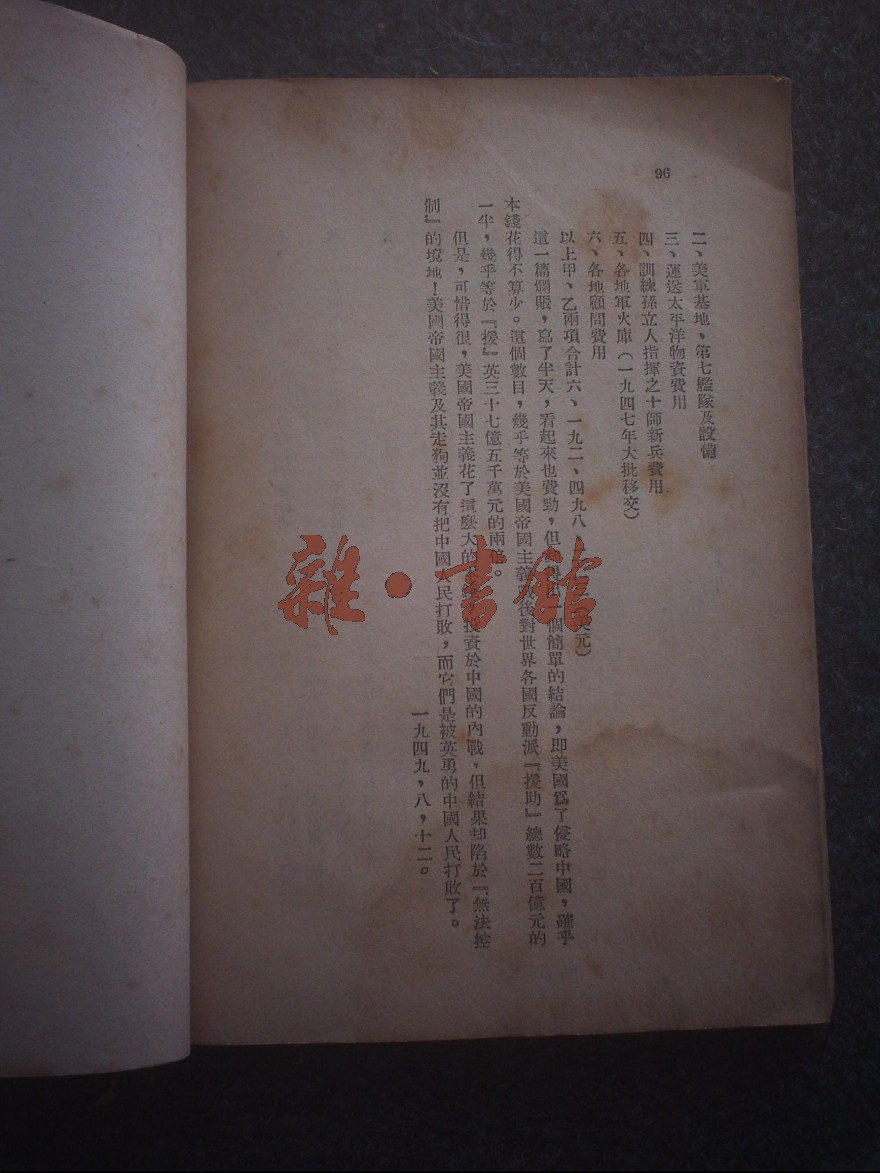 96
二、美軍基地、第七艦隊及設備
三、運送太平洋物資費用
四、訓練孫立人指揮之十師新兵費用
五、各地軍火庫(一九四七年大批移交)
六、各地顧問費用
以上甲、乙兩項合計六、一九二、四九八、元)
這一篇爛賬，寫了半天，看起來也費勁，但個簡單的結論，即美國爲了侵略中國，確乎
本錢花得不算少。這個數目，幾乎等於美國帝國主義後對世界各國反動派『援助』總數二百億元的
一半，幾乎等於『援』英三十七億五千萬元的兩倍。
但是，可惜得很，美國帝國主義花了這麼大的投資於中國的內戰，但結果却陷於『無法控
制』的境地！美國帝國主義及其走狗並沒有把中國人民打敗，而它們是被英勇的中國人民打敗了。
一九四九，八，十二。
雜·書館